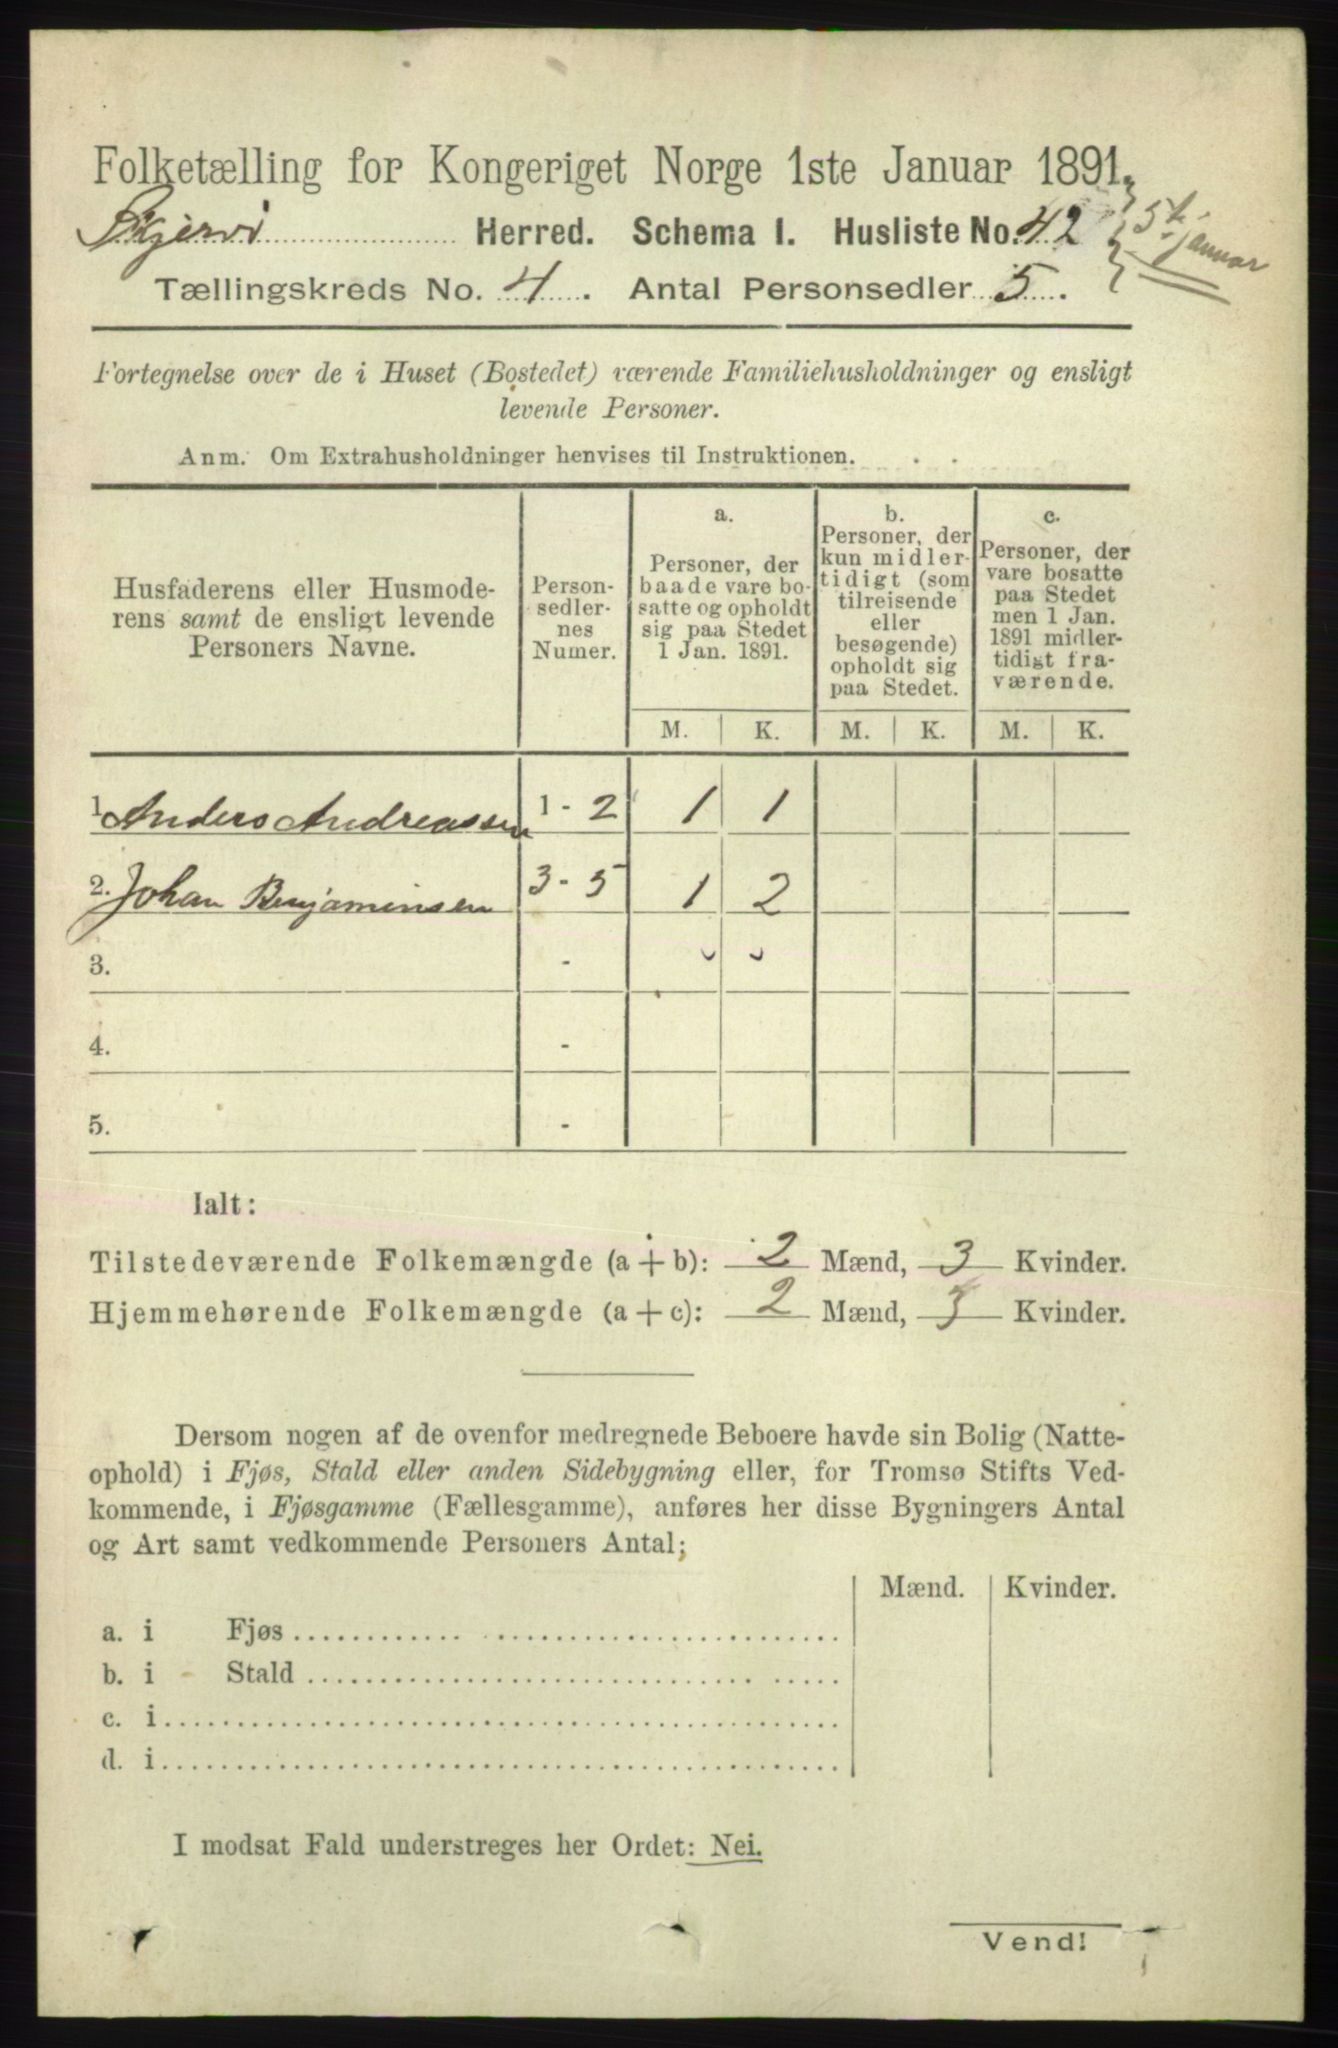 Folketælling for Kongeriget Norge 1ste Januar 1891.
Skjervø Herred. Schema I. Husliste No. 42
5te januar
Tællingskreds No. 4. Antal Personsedler 5.
Fortegnelse over de i Huset (Bostedet) værende Familiehusholdninger og ensligt
levende Personer.
Anm. Om Extrahusholdninger henvises til Instruktionen.
Husfaderens eller Husmode-
rens samt de ensligt levende
Personers Navne.
Person-
sedler-
nes
Numer.
a.
Personer, der
baade vare bo-
satte og opholdt
sig paa Stedet
1 Jan. 1891.
b.
Personer, der
kun midler-
tidigt (som
tilreisende
eller
besøgende)
opholdt sig
paa Stedet.
c.
Personer, der
vare bosatte
paa Stedet
men 1 Jan.
1891 midler-
tidigt fra-
værende.
M. K. M. K. M. K.
1. Anders Andreassen 1 - 2 1 1
2. Johan Benjaminsen 3 - 5 1 2
3. -
4. -
5. -
Ialt:
Tilstedeværende Folkemængde (a + b): 2 Mænd, 3 Kvinder.
Hjemmehørende Folkemængde (a + c): 2 Mænd, 3 Kvinder.
Dersom nogen af de ovenfor medregnede Beboere havde sin Bolig (Natte-
ophold) i Fjøs, Stald eller anden Sidebygning eller, for Tromsø Stifts Ved-
kommende, i Fjøsgamme (Fællesgamme), anføres her disse Bygningers Antal
og Art samt vedkommende Personers Antal;
Mænd. Kvinder.
a. i Fjøs
b. i Stald
c. i
d. i
I modsat Fald understreges her Ordet: Nei.
Vend!